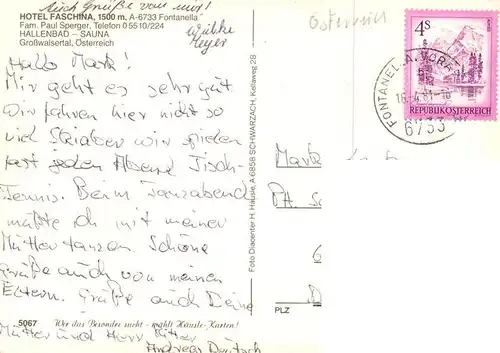 Auch Grüße von mir!
Wiebke
Meyer
HOTEL FASCHINA, 1500 m, A-6733 Fontanella
Fam. Paul Sperger, Telefon 0 55 10/224
HALLENBAD – SAUNA
Großwalsertal, Österreich
Hallo Mark!
Mir geht es sehr gut
Wir fahren hier nicht so
viel Ski aber wir spielen
fast jeden Abend Tisch-
Tennis. Beim Tanzabend
mußte ich mit meiner
Mutter tanzen. Schöne
Grüße auch von meinen
Eltern. Grüße auch Deine
Mutter und Herr Ritter
Andreas Deutsch
5067 Wer das Besondere sucht - wählt Häusle-Karten!
Foto Diacenter H. Häusle, A 6858 SCHWARZACH, Kellaweg 2B
Österreich
4S
REPUBLIK ÖSTERREICH
FONTANELLA, VORARLB
6733
Mark
PLZ